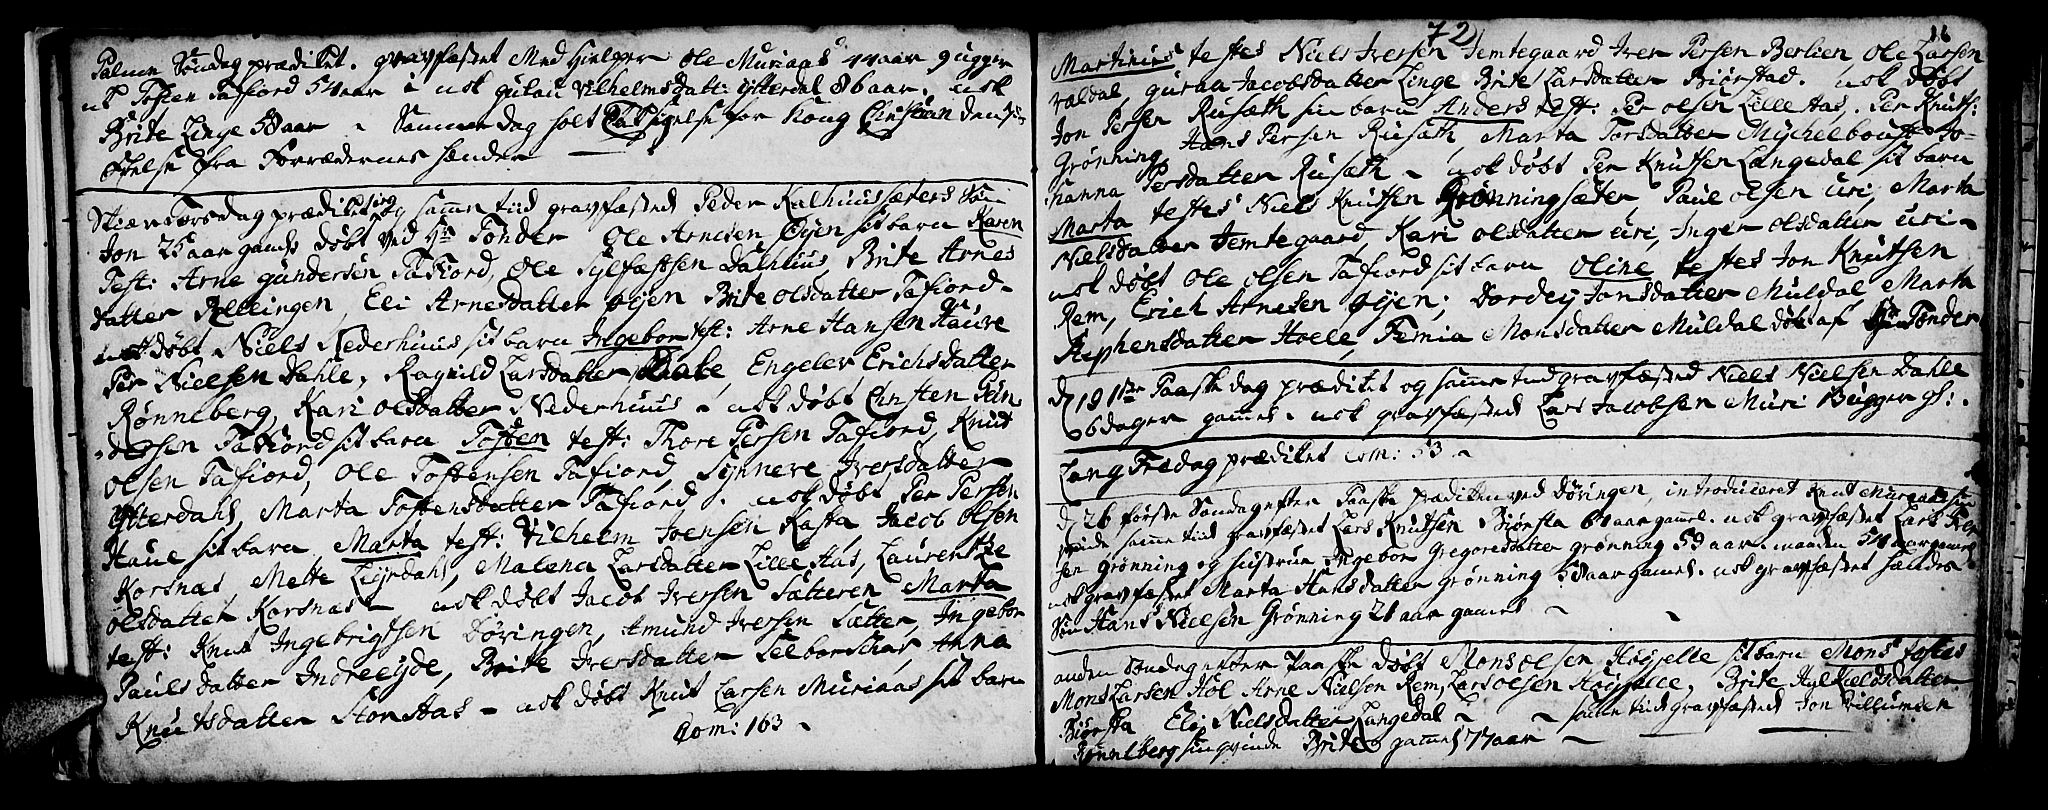 Palme Söndag prædiket. gravfæstet Med Hielper Ole Muraas 44 aar 9 ugger
nk Tosten Tafiord 54 aar i nok gulau Vilhelmsdatt: ytterdal 86 aar. nok
Brite Linge 58 aar - Samme dag holt Taksigelse for Kong Christian den 7
frelse fra Forrædernes hænder
Skiærtorsdag prædiket og samme tiid gravfæsted Peder Kalhuussæters Søn
Jon 25 aar gaml: døbt ved Hr Tønder Ole Arnesen Øyen sit barn Karen
Test: Arne gundersen Tafiord, Ole Sylfæstsen Dalhuus, Brite Arnes
datter Rellingen, Eli Arnesdatter Øyen Brite olsdatter Tafiord -
nok døbt Niels Nederhuus sit barn Ingebor test: Arne Hansen Haure
Per Nielsen Dahle, Ragnild Larsdatter Dale, Engelev Erichsdatter
Rønneberg, Kari olsdatter Nederhuus - nok døbt Christen gun
dersen Tafiord sit barn Tosten test: Thore Persen Tafiord, Knut
olsen Tafiord, Ole Tostensen Tafiord, Synneve Iversdatter
Ytterdahl, Marta Tostensdatter Tafiord. nok døbt Per Persen
Haue sit barn Marta test: Vilhelm Joensen Kasta, Jacob olsen
Korsnæs, Mette Liyrdahl, Malena Larsdatter Lille Aas, Laurentze
olsdatter Korsnæs - nok døbt Jacob Iversen Sætteren Marta
test: Knut Ingebrigtsen Døvingen, Amund Iversen Sætter, Ingebor
Paulsdatter Indreeyde, Brite Iversdatter Anna
Knutsdatter StorAas - nok døbt Knut Larsen Muriaas sit barn
Com: 163 -
72
Martinus testes Niels Iversen Temtegaard Iver Persen Berlien, Ole Larsen
valdal, guraa Jacobsdatter Linge Brite Larsdatter Biørstad. nok døbt
Jon Persen Rusæth sin barn Anders test: Per olsen Lille Aas, Per Knuts:
Grønning Hans Persen Rusæth, Marta Torsdatter Mychelboust Jo-
hanna Persdatter Rusæth - nok døbt Per Knutsen Langedal sit barn
Marta testes Niels Knutsen Grønningsæter Paul olsen uri, Marta
Nielsdatter Temtegaard, Kari olsdatter uri, Inger olsdatter uri -
nok døbt Ole olsen Tafiord sit barn Oline testes Jon Knutsen
Rem, Erich Arnesen Øyen, Dordey Jonsdatter Muldal, Marta
Stephensdatter Hoele, Femia Monsdatter Muldal døbt af Hr Tønder
d 19 1ste Paaskedag prædiket og samme tiid gravfæsted Niels Nielsen Dahle
6 dager gamel - nok gravfæsted Lars Jacobsen Muri 8 ugger gl: .
Lang Fredag prædiket Com: 53 -
d 26 første Søndag efter Paaske prædiken ved Døvingen, introduceret Knut Muraas
qvinde samme tiid gravfæstet Lars Knutsen Biørsta 61 aar gamel. nok gravfæstet Lars Iver
sen grønning og hustrue Ingebor Gregoresdatter grønning 59 aar. manden 54 aar gamel
nok gravfæstet Marta Hansdatter grønning 58 aar gamel. nok gravfæstet hændes
Søn Hans Nielsen Grønning 21 aar gamel
anden Søndag efter Paaske døbt Mons olsen Høyselle sit barn Mons testes
Mons Larsen Hol Arne Nielsen Rem, Lars olsen Høyselle, Brite Kieldsdatter
Biørsta Eli Nielsdatter Langedal - samme tiid gravfæsted Jon Villumsen
Rønneberg sin qvinde Brite gamel 77 aar -